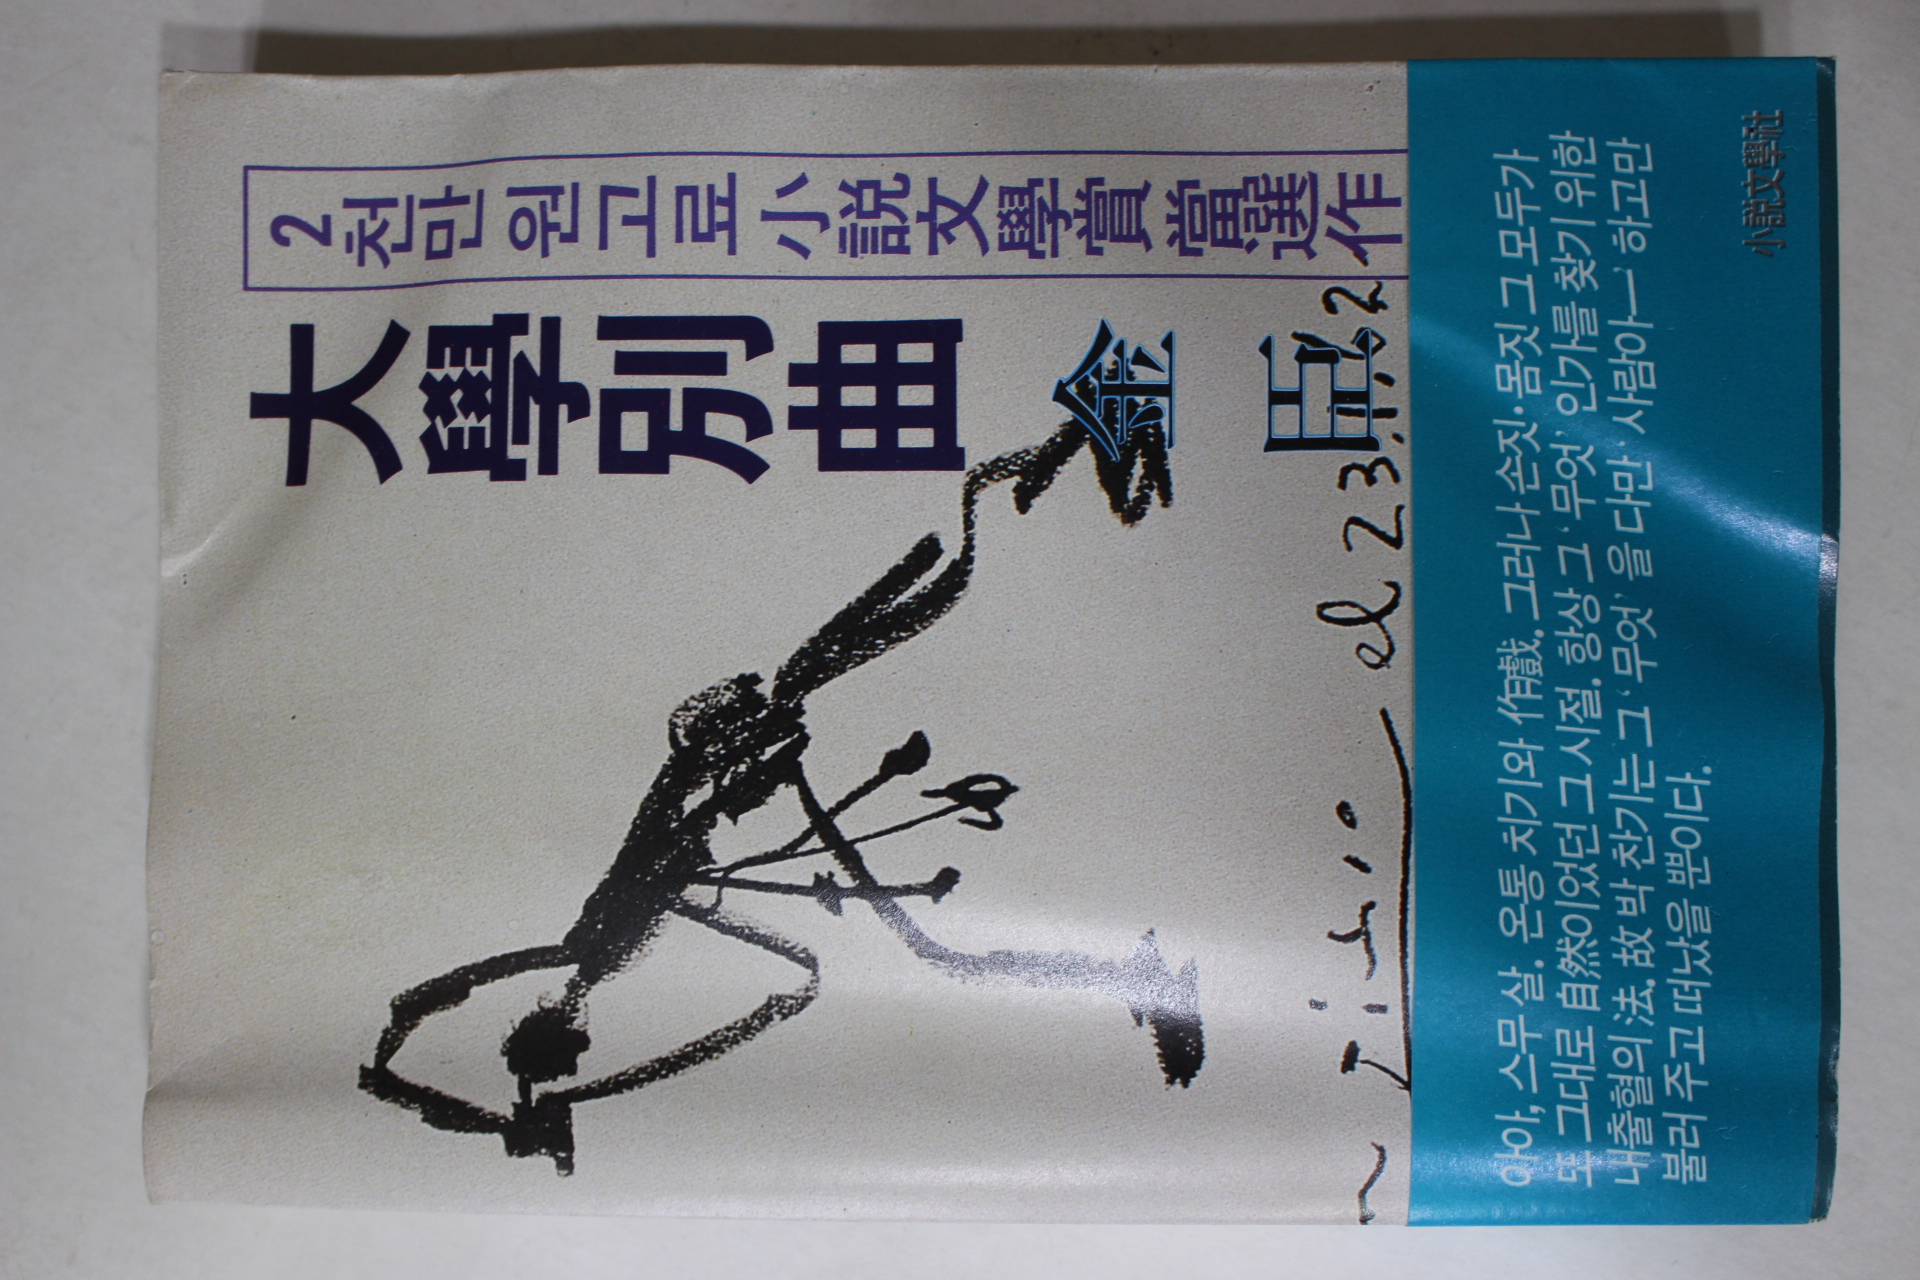 2천만원고료 小說文學賞當選作
大學別曲
金 臣
el 23.
아아, 스무 살. 온통 치기와 作戱. 그러나 손짓·몸짓 그 모두가
또 그대로 自然이었던 그 시절. 항상 그 ‘무엇’인가를 찾기 위한
내출혈의 法. 故 박찬기는 그 ‘무엇’을 다만 ‘사람아—’ 하고만
불러 주고 떠났을 뿐이다.
小說文學社